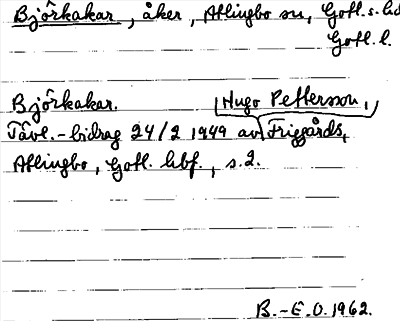 Björkakar, åker, Atlingbo sn, Gotl. s. hd
Gotl. l.
Björkakar. Hugo Pettersson,
Tävl.-bidrag 24/2 1949 av Friggårds,
Atlingbo, Gotl. hbf., s. 2.
B.-E.O. 1962.